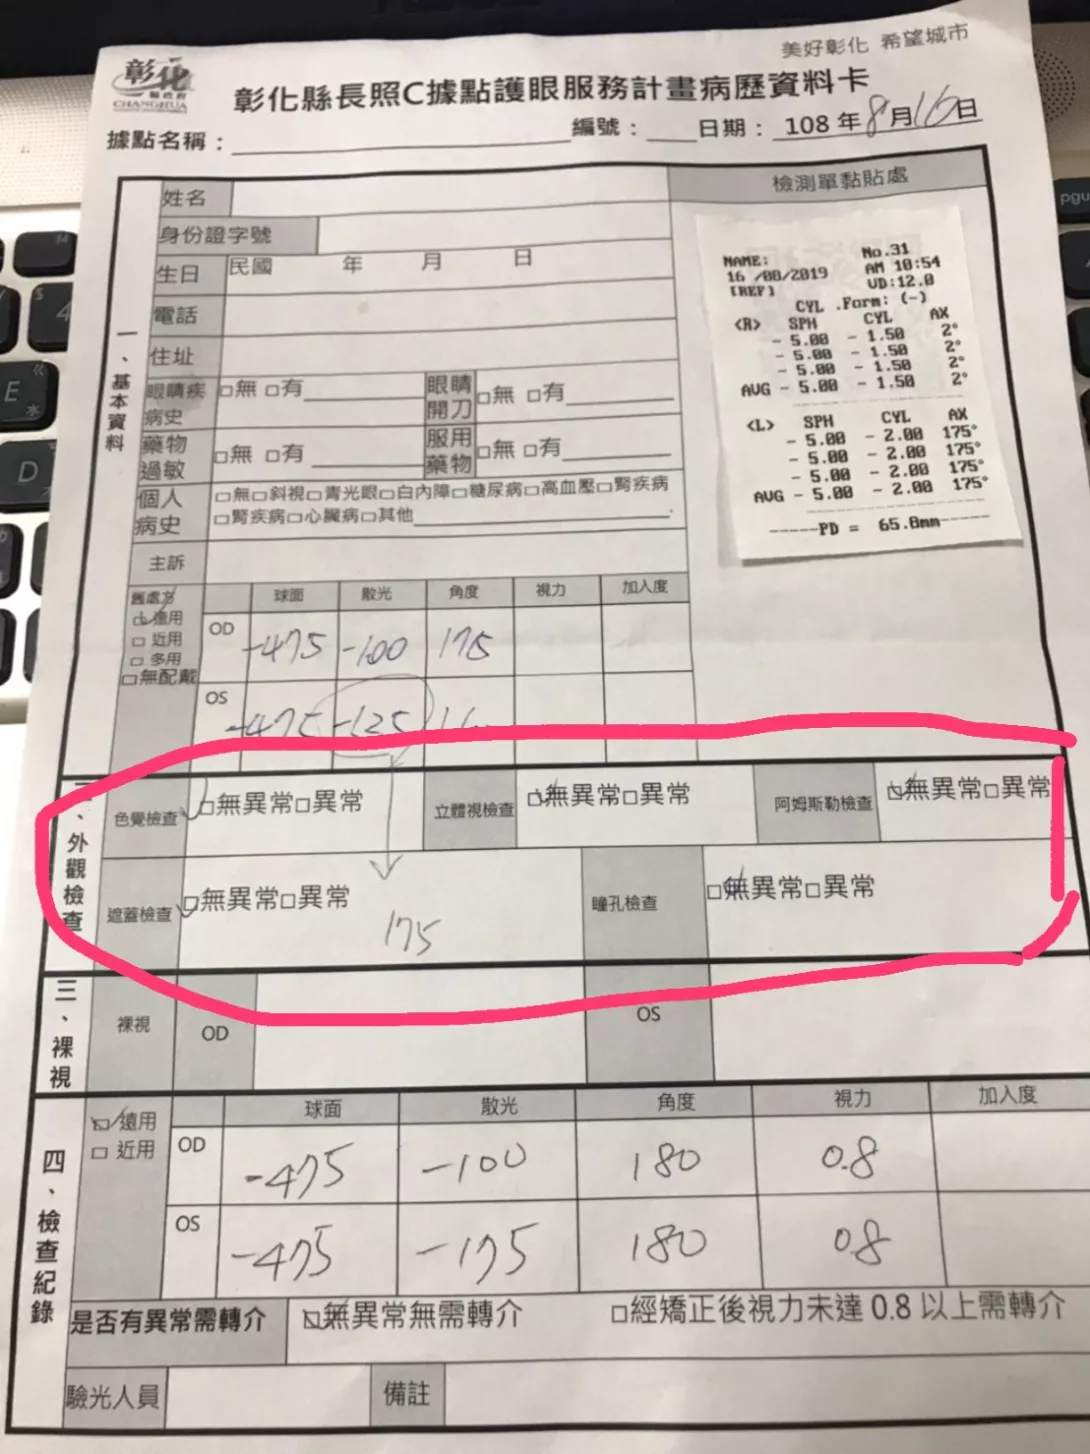 美好彰化 希望城市
彰化
縣政府
CHANGHUA
彰化縣長照C據點護眼服務計畫病歷資料卡
據點名稱：
編號： 日期： 108 年 8 月 16 日
一、基本資料
姓名
檢測單黏貼處
身份證字號
生日 民國 年 月 日
電話
住址
眼睛疾病史 □無 □有
眼睛開刀 □無 □有
藥物過敏 □無 □有
服用藥物 □無 □有
個人病史 □無□斜視□青光眼□白內障□糖尿病□高血壓□腎疾病
□腎疾病□心臟病□其他
主訴
NAME: No.31
16 /08/2019 AM 10:54
[REF] VD:12.0
CYL .Form: (-)
<R> SPH CYL AX
- 5.00 - 1.50 2°
- 5.00 - 1.50 2°
- 5.00 - 1.50 2°
AVG - 5.00 - 1.50 2°
<L> SPH CYL AX
- 5.00 - 2.00 175°
- 5.00 - 2.00 175°
- 5.00 - 2.00 175°
AVG - 5.00 - 2.00 175°
-----PD = 65.8mm-----
舊處方
□遠用
□ 近用
□ 多用
□無配戴
球面 散光 角度 視力 加入度
OD -475 -100 175
OS -475 -125
二、外觀檢查
色覺檢查 □無異常□異常
立體視檢查 □無異常□異常
阿姆斯勒檢查 □無異常□異常
遮蓋檢查 □無異常□異常
175
瞳孔檢查 □無異常□異常
三、裸視
裸視 OD OS
四、檢查紀錄
□遠用
□ 近用
球面 散光 角度 視力 加入度
OD -475 -100 180 0.8
OS -475 -175 180 0.8
是否有異常需轉介 □無異常無需轉介 □經矯正後視力未達 0.8 以上需轉介
驗光人員 備註
E
D
4
pgu